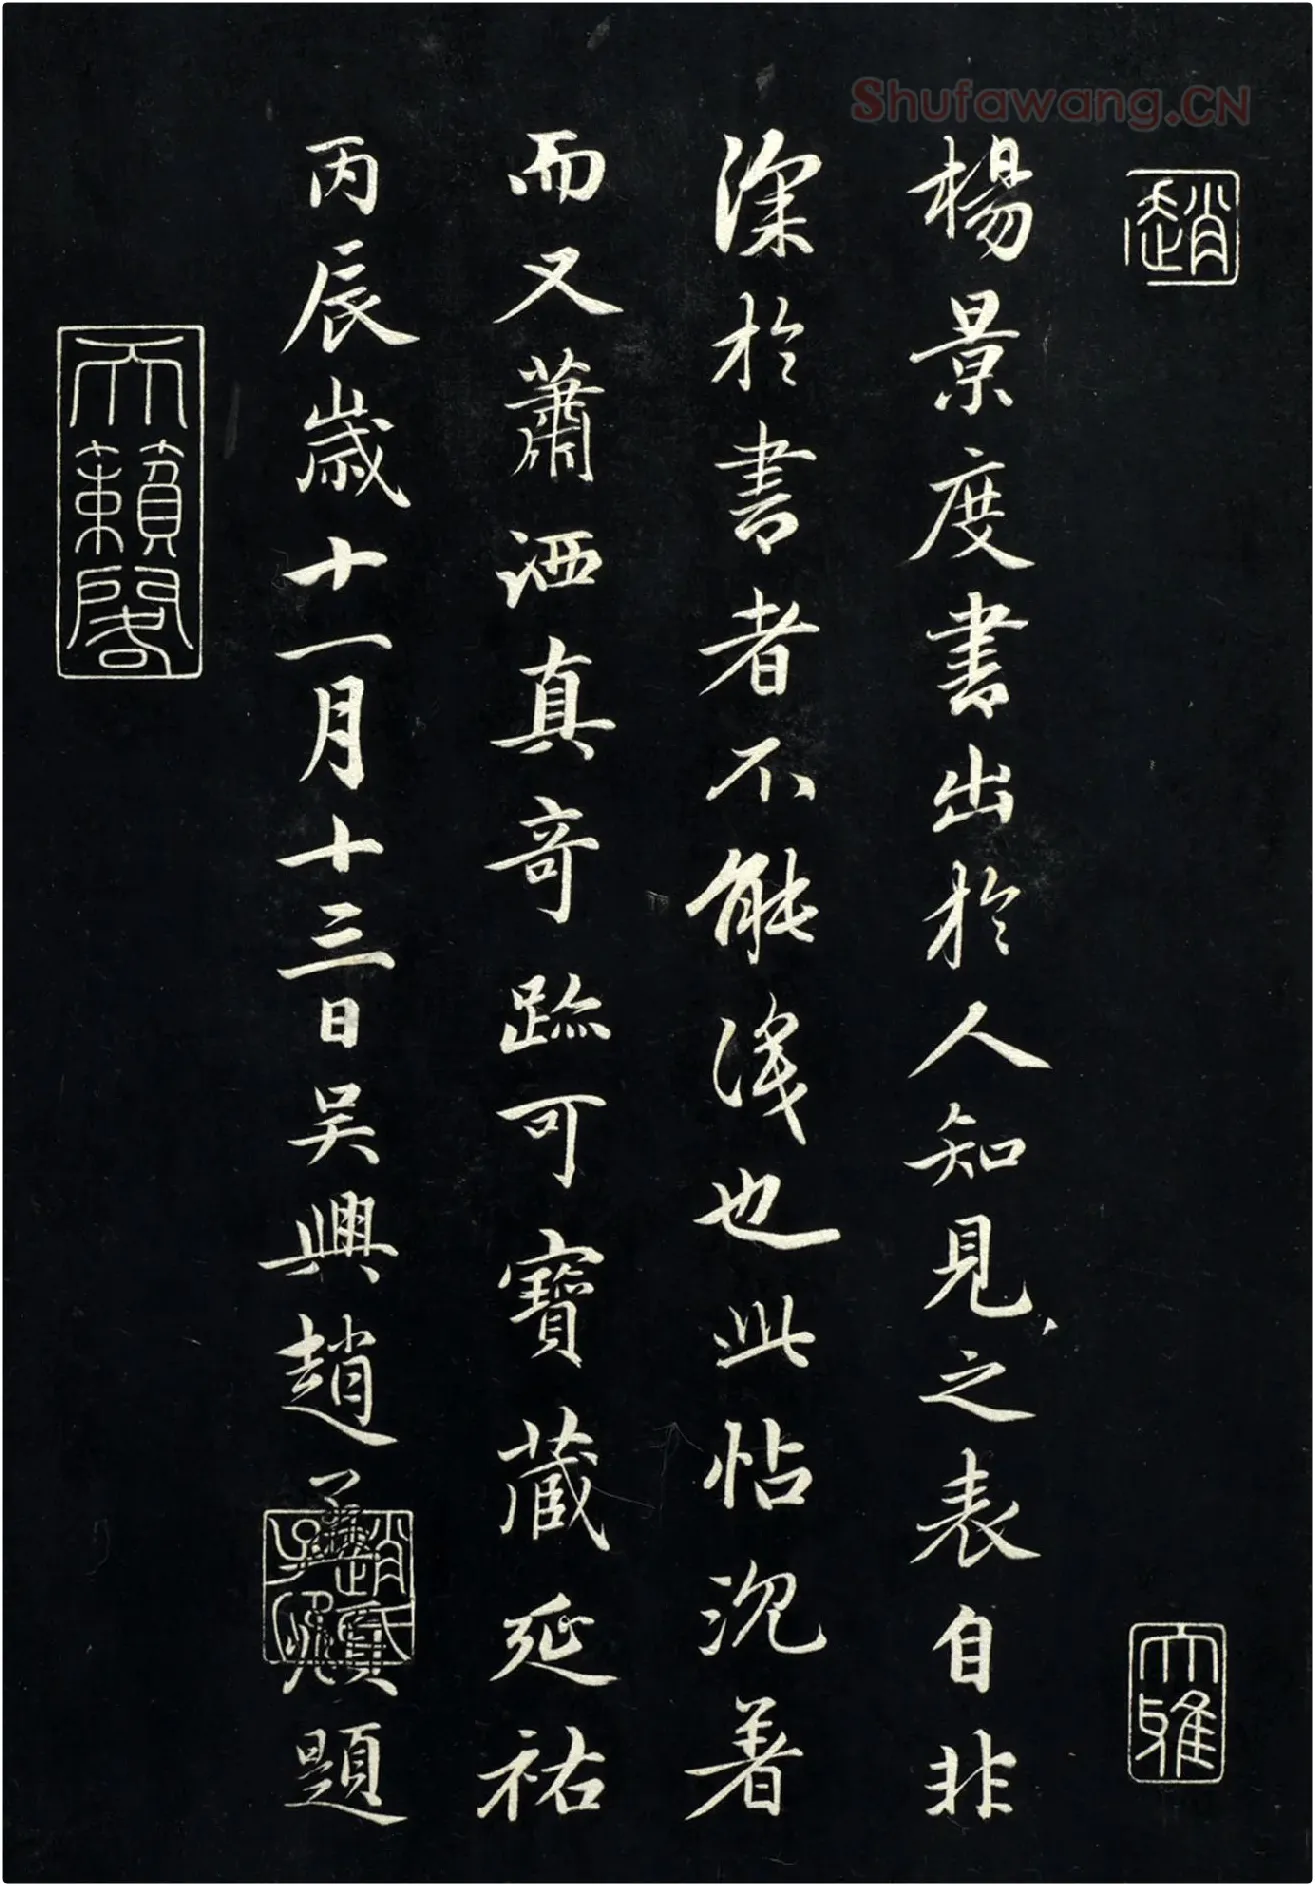 Shufawang.CN
趙
大雅
楊景度書出於人知見之表自非
深於書者不能淺也此帖沉著
而又蕭洒真奇跡可寶藏延祐
丙辰歲十一月十三日吳興趙孟頫題
趙氏子昂
天籟閣